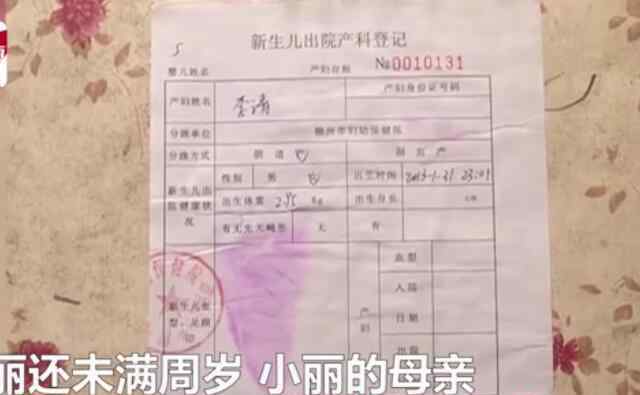 5
新生儿出院产科登记
婴儿姓名 产妇存根 №0010131
产妇姓名 李清 产妇身份证号码
分娩单位 柳州市妇幼保健院
分娩方式 顺 产 剖 宫 产
新生儿出院健康状况 性别 男 出生时间 2013-1-31
出生体重 2.75 Kg 出生身长 cm
有无先天畸形 无 有
血型
入院日期
产妇
出院
丽还未满周岁 小丽的母亲